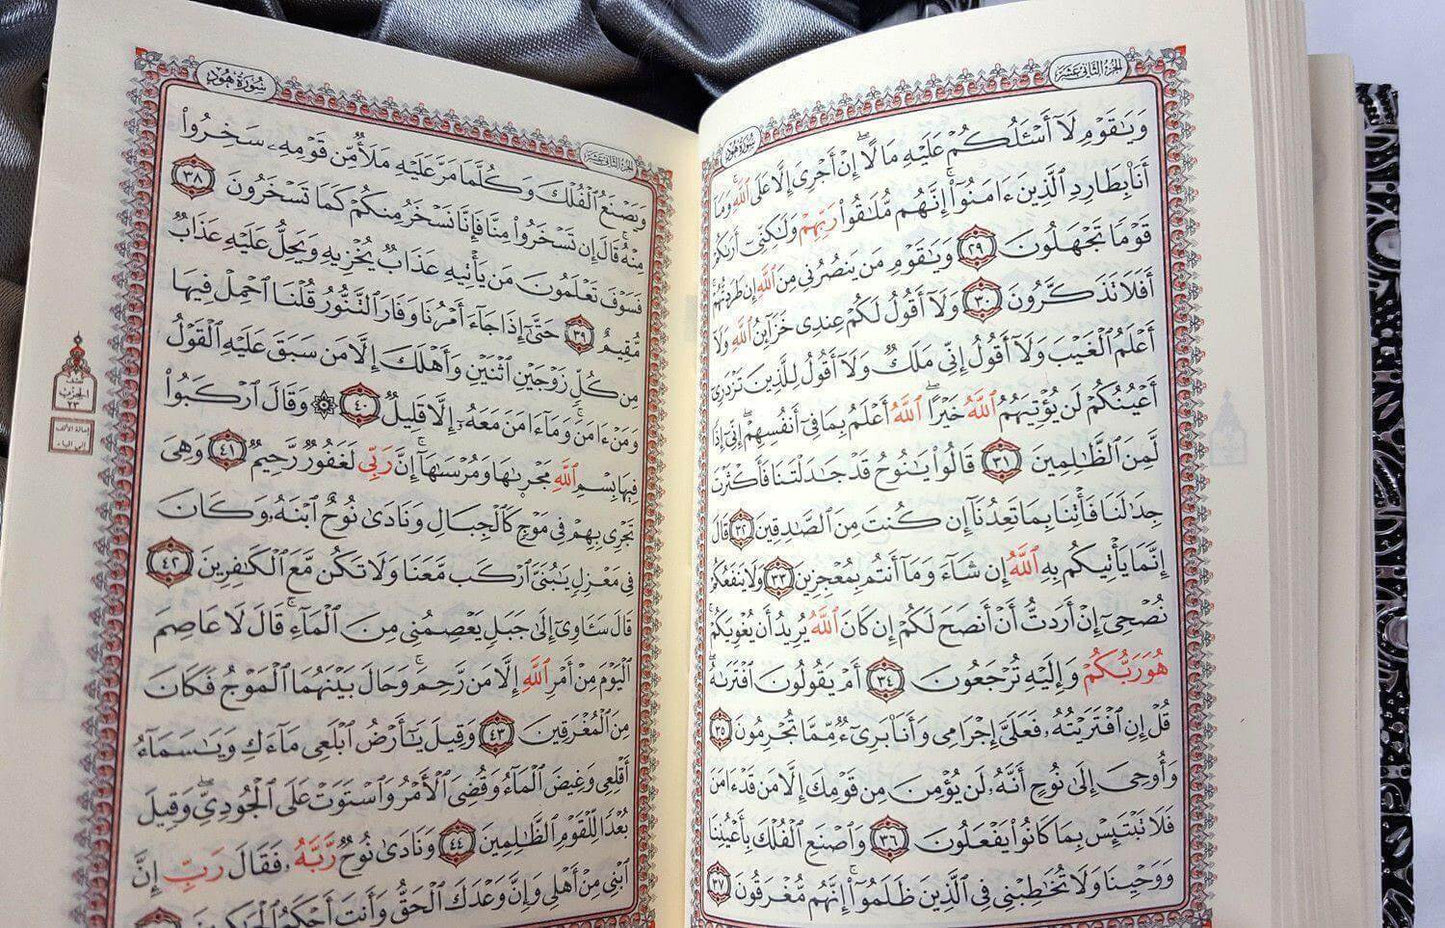 الجزء الثاني عشر
سورة هود
وَيَٰقَوْمِ لَآ أَسْـَٔلُكُمْ عَلَيْهِ مَالًا ۖ إِنْ أَجْرِىَ إِلَّا عَلَى ٱللَّهِ ۚ وَمَآ
أَنَا۠ بِطَارِدِ ٱلَّذِينَ ءَامَنُوٓا۟ ۚ إِنَّهُم مُّلَٰقُوا۟ رَبِّهِمْ وَلَٰكِنِّىٓ أَرَىٰكُمْ
قَوْمًا تَجْهَلُونَ ٢٩ وَيَٰقَوْمِ مَن يَنصُرُنِى مِنَ ٱللَّهِ إِن طَرَدتُّهُمْ ۚ
أَفَلَا تَذَكَّرُونَ ٣٠ وَلَآ أَقُولُ لَكُمْ عِندِى خَزَآئِنُ ٱللَّهِ وَلَآ
أَعْلَمُ ٱلْغَيْبَ وَلَآ أَقُولُ إِنِّى مَلَكٌ وَلَآ أَقُولُ لِلَّذِينَ تَزْدَرِىٓ
أَعْيُنُكُمْ لَن يُؤْتِيَهُمُ ٱللَّهُ خَيْرًا ۖ ٱللَّهُ أَعْلَمُ بِمَا فِىٓ أَنفُسِهِمْ ۖ إِنِّىٓ إِذًا
لَّمِنَ ٱلظَّٰلِمِينَ ٣١ قَالُوا۟ يَٰنُوحُ قَدْ جَٰدَلْتَنَا فَأَكْثَرْتَ
جِدَٰلَنَا فَأْتِنَا بِمَا تَعِدُنَآ إِن كُنتَ مِنَ ٱلصَّٰدِقِينَ ٣٢ قَالَ
إِنَّمَا يَأْتِيكُم بِهِ ٱللَّهُ إِن شَآءَ وَمَآ أَنتُم بِمُعْجِزِينَ ٣٣ وَلَا يَنفَعُكُمْ
نُصْحِىٓ إِنْ أَرَدتُّ أَنْ أَنصَحَ لَكُمْ إِن كَانَ ٱللَّهُ يُرِيدُ أَن يُغْوِيَكُمْ ۚ
هُوَ رَبُّكُمْ وَإِلَيْهِ تُرْجَعُونَ ٣٤ أَمْ يَقُولُونَ ٱفْتَرَىٰهُ ۖ
قُلْ إِنِ ٱفْتَرَيْتُهُۥ فَعَلَىَّ إِجْرَامِى وَأَنَا۠ بَرِىٓءٌ مِّمَّا تُجْرِمُونَ ٣٥
وَأُوحِىَ إِلَىٰ نُوحٍ أَنَّهُۥ لَن يُؤْمِنَ مِن قَوْمِكَ إِلَّا مَن قَدْ ءَامَنَ
فَلَا تَبْتَئِسْ بِمَا كَانُوا۟ يَفْعَلُونَ ٣٦ وَٱصْنَعِ ٱلْفُلْكَ بِأَعْيُنِنَا
وَوَحْيِنَا وَلَا تُخَٰطِبْنِى فِى ٱلَّذِينَ ظَلَمُوٓا۟ ۚ إِنَّهُم مُّغْرَقُونَ ٣٧
الجزء الثاني عشر
سورة هود
وَيَصْنَعُ ٱلْفُلْكَ وَكُلَّمَا مَرَّ عَلَيْهِ مَلَأٌ مِّن قَوْمِهِۦ سَخِرُوا۟
مِنْهُ ۚ قَالَ إِن تَسْخَرُوا۟ مِنَّا فَإِنَّا نَسْخَرُ مِنكُمْ كَمَا تَسْخَرُونَ ٣٨
فَسَوْفَ تَعْلَمُونَ مَن يَأْتِيهِ عَذَابٌ يُخْزِيهِ وَيَحِلُّ عَلَيْهِ عَذَابٌ
مُّقِيمٌ ٣٩ حَتَّىٰٓ إِذَا جَآءَ أَمْرُنَا وَفَارَ ٱلتَّنُّورُ قُلْنَا ٱحْمِلْ فِيهَا
مِن كُلٍّ زَوْجَيْنِ ٱثْنَيْنِ وَأَهْلَكَ إِلَّا مَن سَبَقَ عَلَيْهِ ٱلْقَوْلُ
وَمَنْ ءَامَنَ ۚ وَمَآ ءَامَنَ مَعَهُۥٓ إِلَّا قَلِيلٌ ٤٠ ۞ وَقَالَ ٱرْكَبُوا۟
فِيهَا بِسْمِ ٱللَّهِ مَجْر۪ىٰهَا وَمُرْسَىٰهَآ ۚ إِنَّ رَبِّى لَغَفُورٌ رَّحِيمٌ ٤١ وَهِىَ
تَجْرِى بِهِمْ فِى مَوْجٍ كَٱلْجِبَالِ وَنَادَىٰ نُوحٌ ٱبْنَهُۥ وَكَانَ
فِى مَعْزِلٍ يَٰبُنَىَّ ٱرْكَب مَّعَنَا وَلَا تَكُن مَّعَ ٱلْكَٰفِرِينَ ٤٢
قَالَ سَـَٔاوِىٓ إِلَىٰ جَبَلٍ يَعْصِمُنِى مِنَ ٱلْمَآءِ ۚ قَالَ لَا عَاصِمَ
ٱلْيَوْمَ مِنْ أَمْرِ ٱللَّهِ إِلَّا مَن رَّحِمَ ۚ وَحَالَ بَيْنَهُمَا ٱلْمَوْجُ فَكَانَ
مِنَ ٱلْمُغْرَقِينَ ٤٣ وَقِيلَ يَٰٓأَرْضُ ٱبْلَعِى مَآءَكِ وَيَٰسَمَآءُ
أَقْلِعِى وَغِيضَ ٱلْمَآءُ وَقُضِىَ ٱلْأَمْرُ وَٱسْتَوَتْ عَلَى ٱلْجُودِىِّ ۖ وَقِيلَ
بُعْدًا لِّلْقَوْمِ ٱلظَّٰلِمِينَ ٤٤ وَنَادَىٰ نُوحٌ رَّبَّهُۥ فَقَالَ رَبِّ إِنَّ
ٱبْنِى مِنْ أَهْلِى وَإِنَّ وَعْدَكَ ٱلْحَقُّ وَأَنتَ أَحْكَمُ ٱلْحَٰكِمِينَ
نصف
الحزب
٢٣
إمالة الألف
إلى الياء